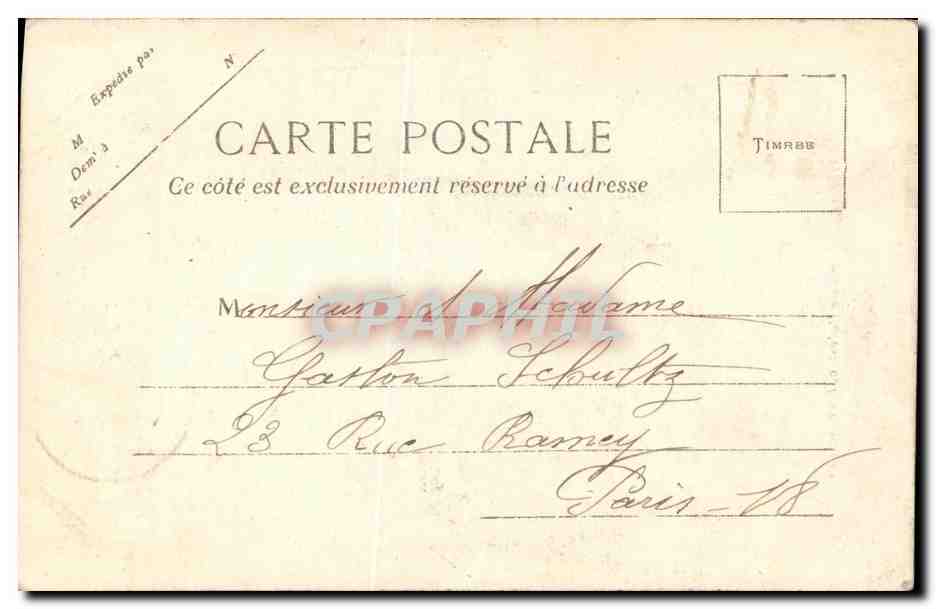 Expédié par
N
M
Demt à
Rue
CARTE POSTALE
Ce côté est exclusivement réservé à l'adresse
TIMBRE
Monsieur & Madame
Gaston Schultz
23 Rue Ramey
Paris - 18
CPAPHIL